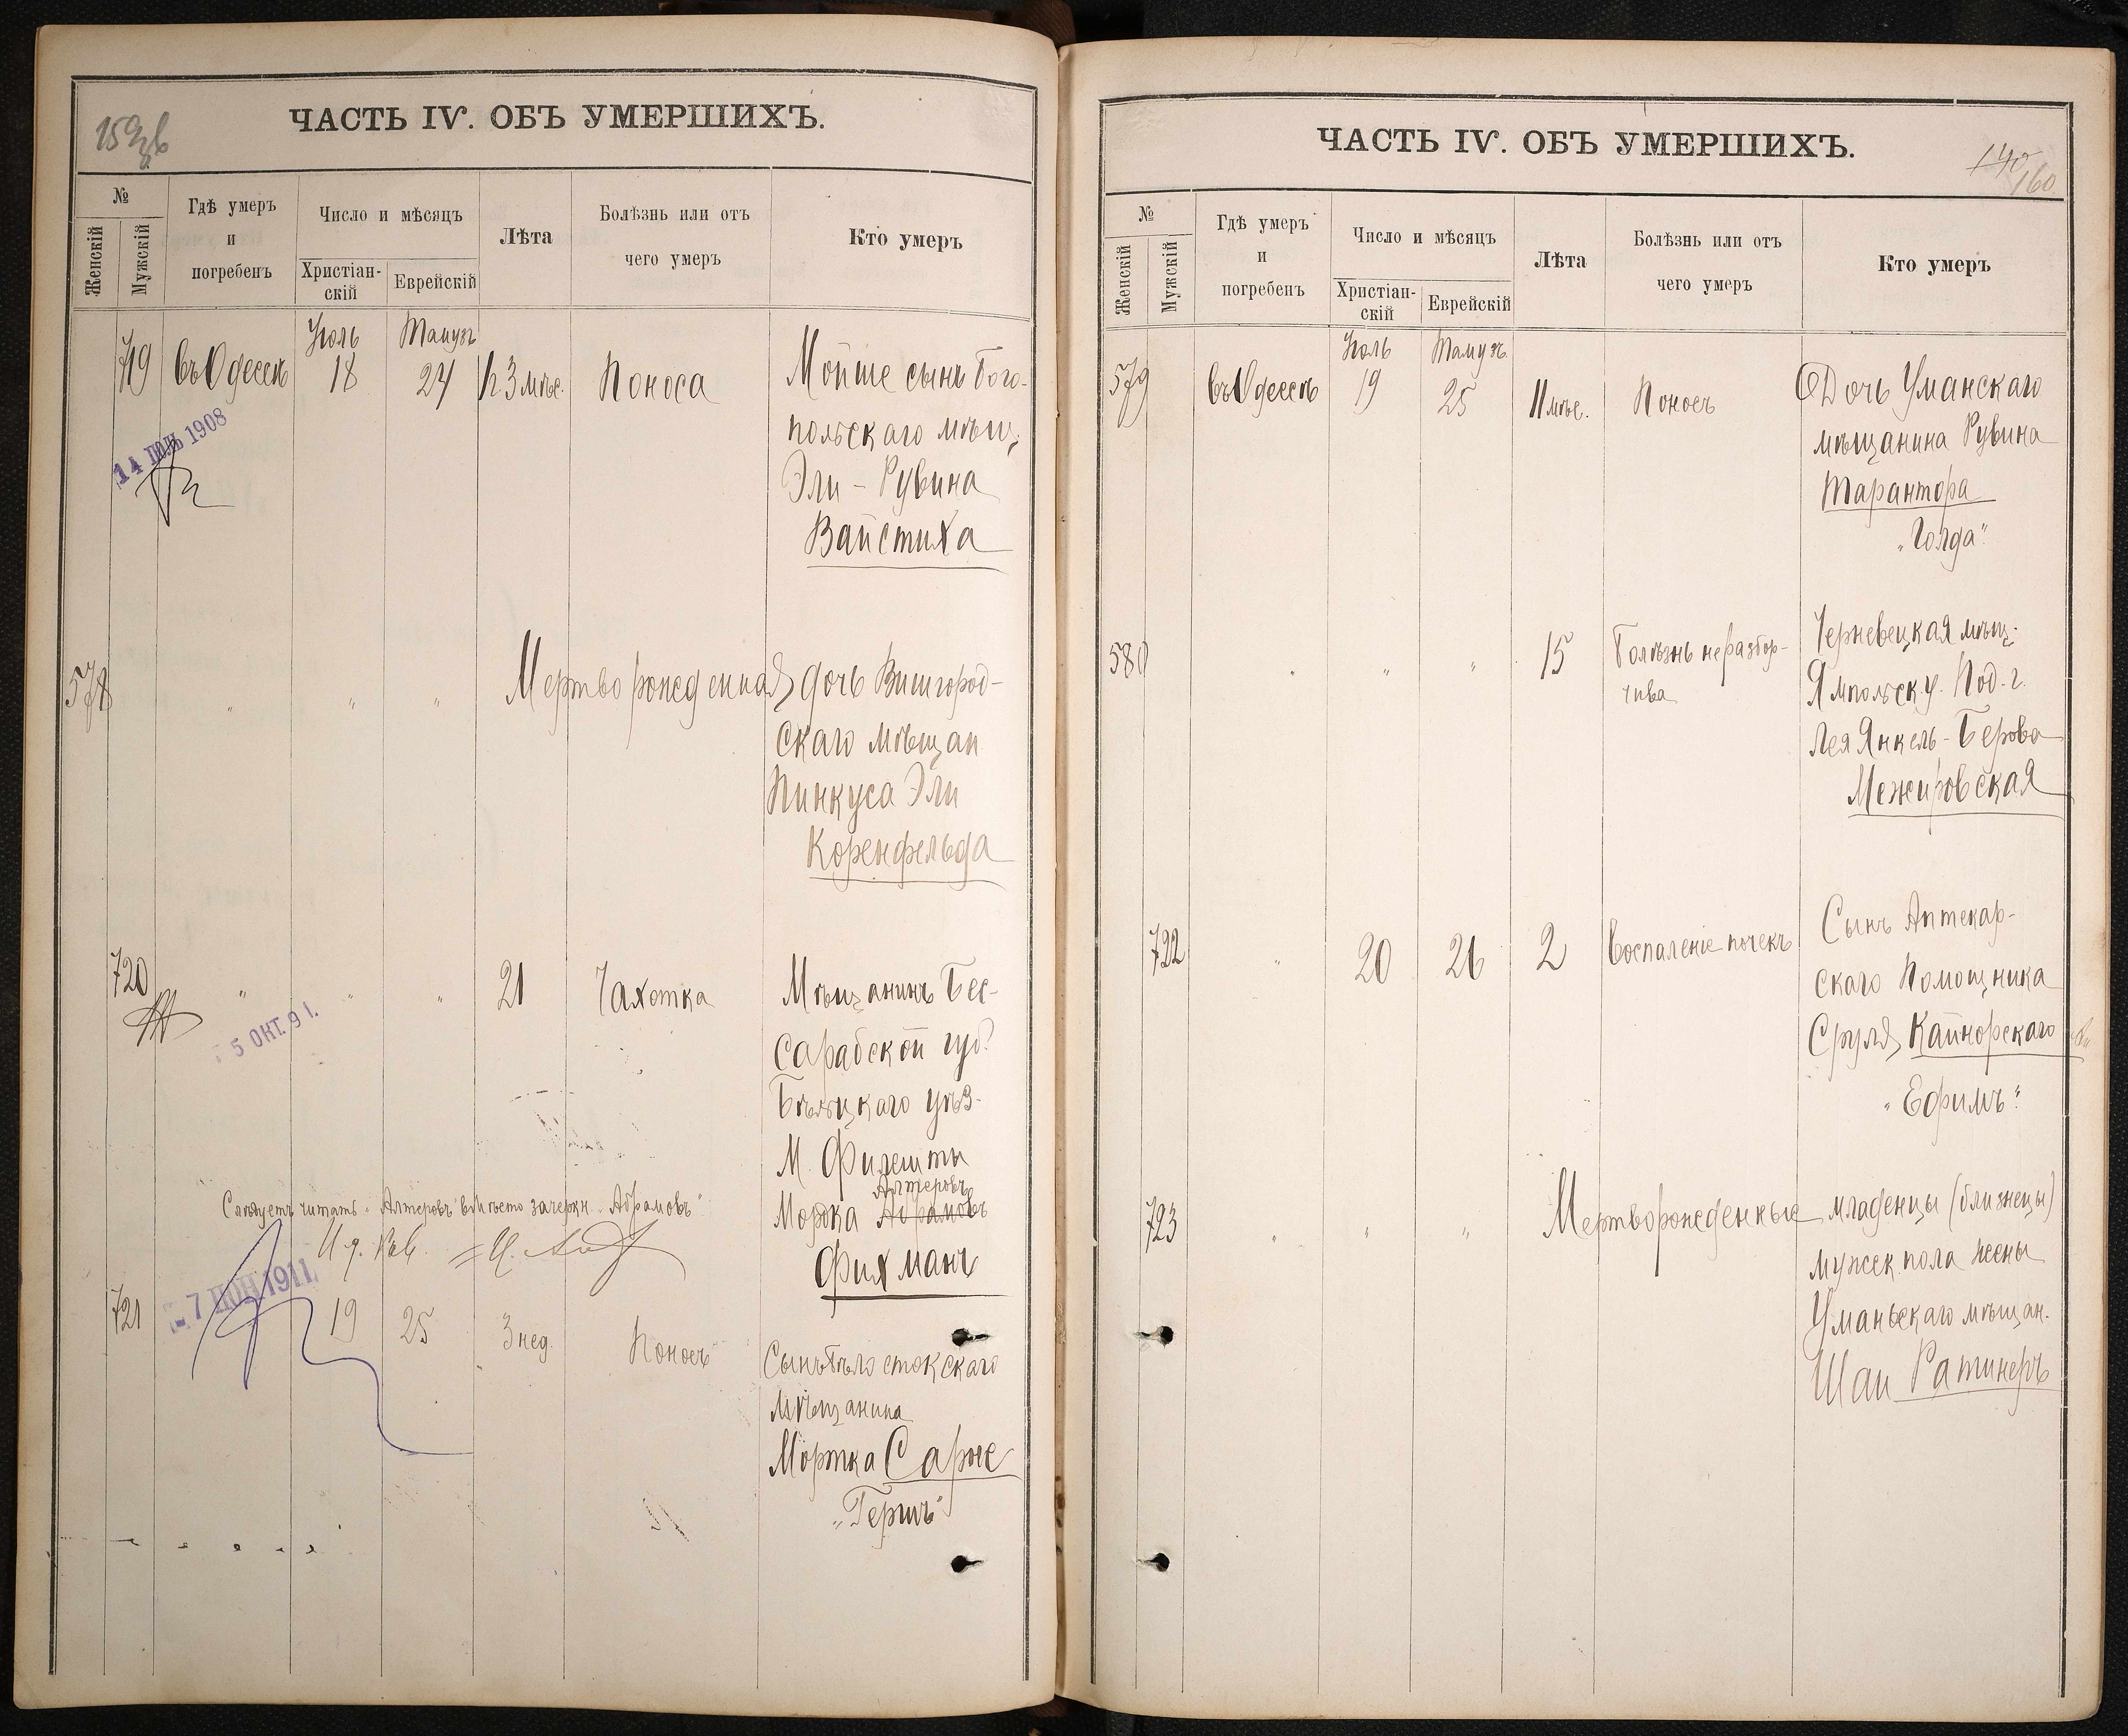 159об
ЧАСТЬ IV. ОБЪ УМЕРШИХЪ.
№
Женскій
Мужскій
Гдѣ умеръ
и
погребенъ
Число и мѣсяцъ
Христіан-
скій
Еврейскій
Лѣта
Болѣзнь или отъ
чего умеръ
Кто умеръ
Іюль Тамузъ
719 въ Одессѣ 18 24 3 мѣс. Поноса Мойше сынъ Бого-
польскаго мѣщ.
Эли-Рувина
Вайстиха
14 ІЮЛЬ 1908
578 " " " Мертворожденная дочь Вишгород-
скаго мѣщан
Пинкуса Эли
Коренфельда
720 " " " 21 Чахотка Мѣщанинъ Бес-
сарабской губ.
Бѣлецкаго уѣз-
М. Фалешты
Алтеровъ
Мошка Абрамовъ
Фихманъ
5 ОКТ. 91.
Слѣдуетъ читать "Алтеровъ" вмѣсто зачеркн. "Абрамовъ"
И. д. Рав.
7 ІЮН 1911
721 19 25 3 нед. Поносъ Сынъ Бѣлостокскаго
мѣщанина
Мортка Сарне
"Гершъ"
ЧАСТЬ IV. ОБЪ УМЕРШИХЪ.
140
160
№
Женскій
Мужскій
Гдѣ умеръ
и
погребенъ
Число и мѣсяцъ
Христіан-
скій
Еврейскій
Лѣта
Болѣзнь или отъ
чего умеръ
Кто умеръ
Іюль Тамузъ
579 въ Одессѣ 19 25 11 мѣс. Поносъ Дочь Уманскаго
мѣщанина Рувина
Тарантора
"Голда"
580 " " " 15 Болѣзнь неразбор-
чива
Черневецкая мѣщ.
Ямпольск. у. Под. г.
Лея Янкель-Берова
Межировская
722 " 20 26 2 Воспаленіе почекъ Сынъ Аптекар-
скаго Помощника
Сруля Кайнорскаго
"Ефимъ"
723 " " " Мертворожденные младенцы (близнецы)
мужск. пола жены
Уманьскаго мѣщан.
Шаи Ратинеръ